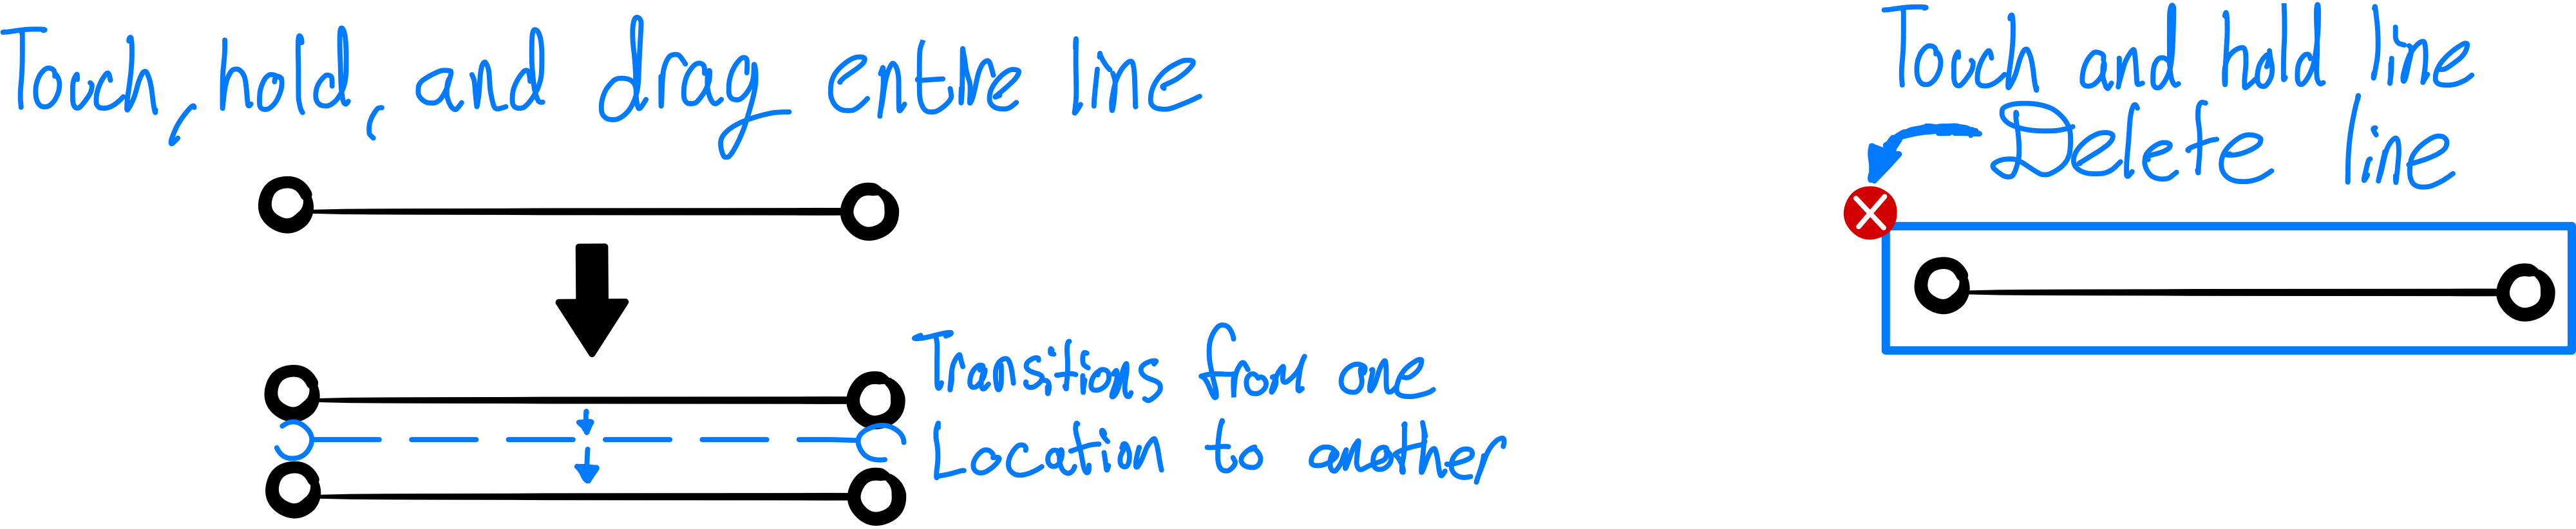 Touch, hold, and drag entire line
Transitions from one
Location to another
Touch and hold line
Delete line